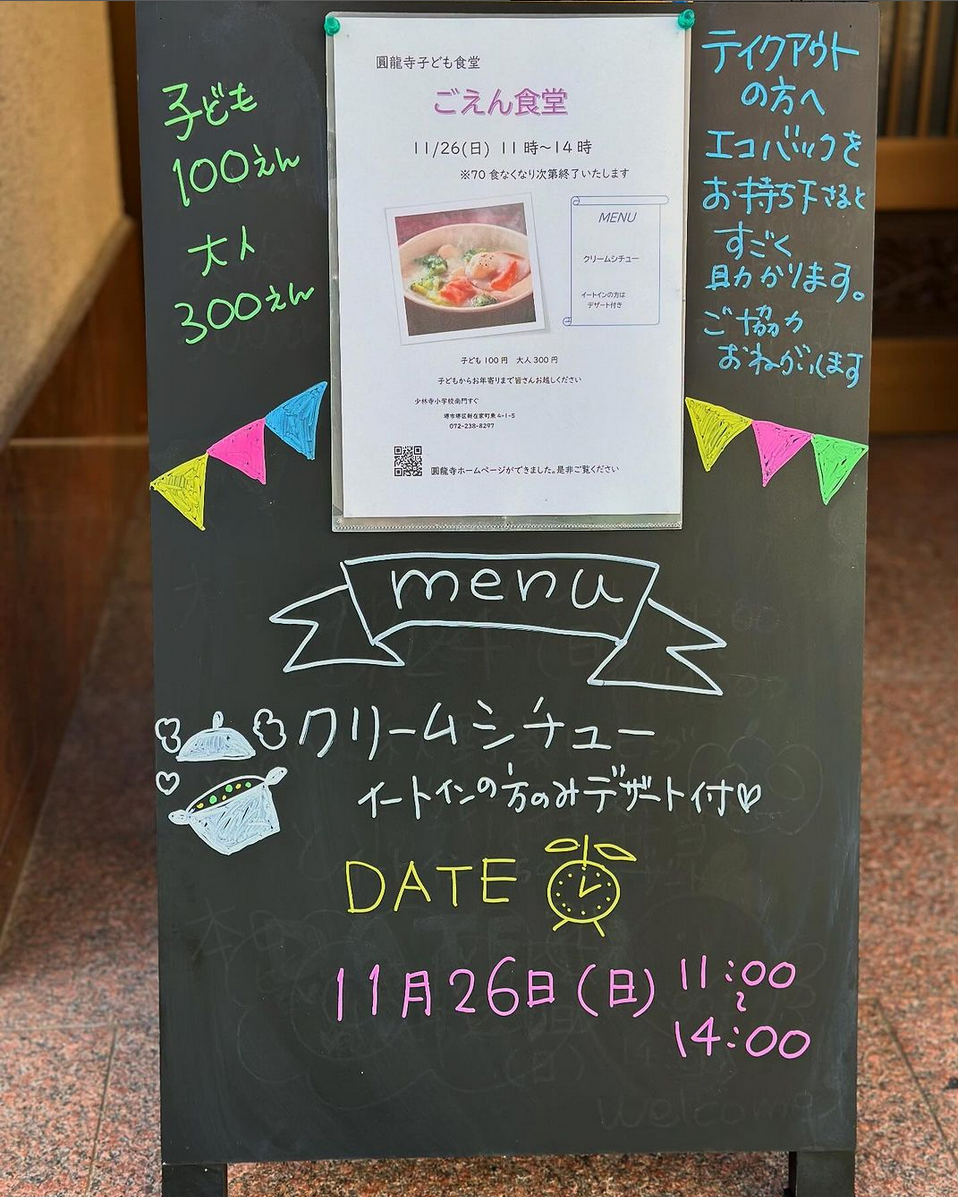 子ども
100えん
大人
300えん
圓龍寺子ども食堂
ごえん食堂
11/26(日) 11時～14時
※70食なくなり次第終了いたします
MENU
クリームシチュー
イートインの方は
デザート付き
子ども100円　大人300円
子どもからお年寄りまで皆さんお越しください
少林寺小学校南門すぐ
堺市堺区新在家町東4-1-5
072-238-8297
圓龍寺ホームページができました。是非ご覧ください
テイクアウト
の方へ
エコバックを
お持ち下さると
すごく
助かります。
ご協力
おねがいします
menu
クリームシチュー
イートインの方のみデザート付♡
DATE
11月26日(日) 11:00
～
14:00
welcome